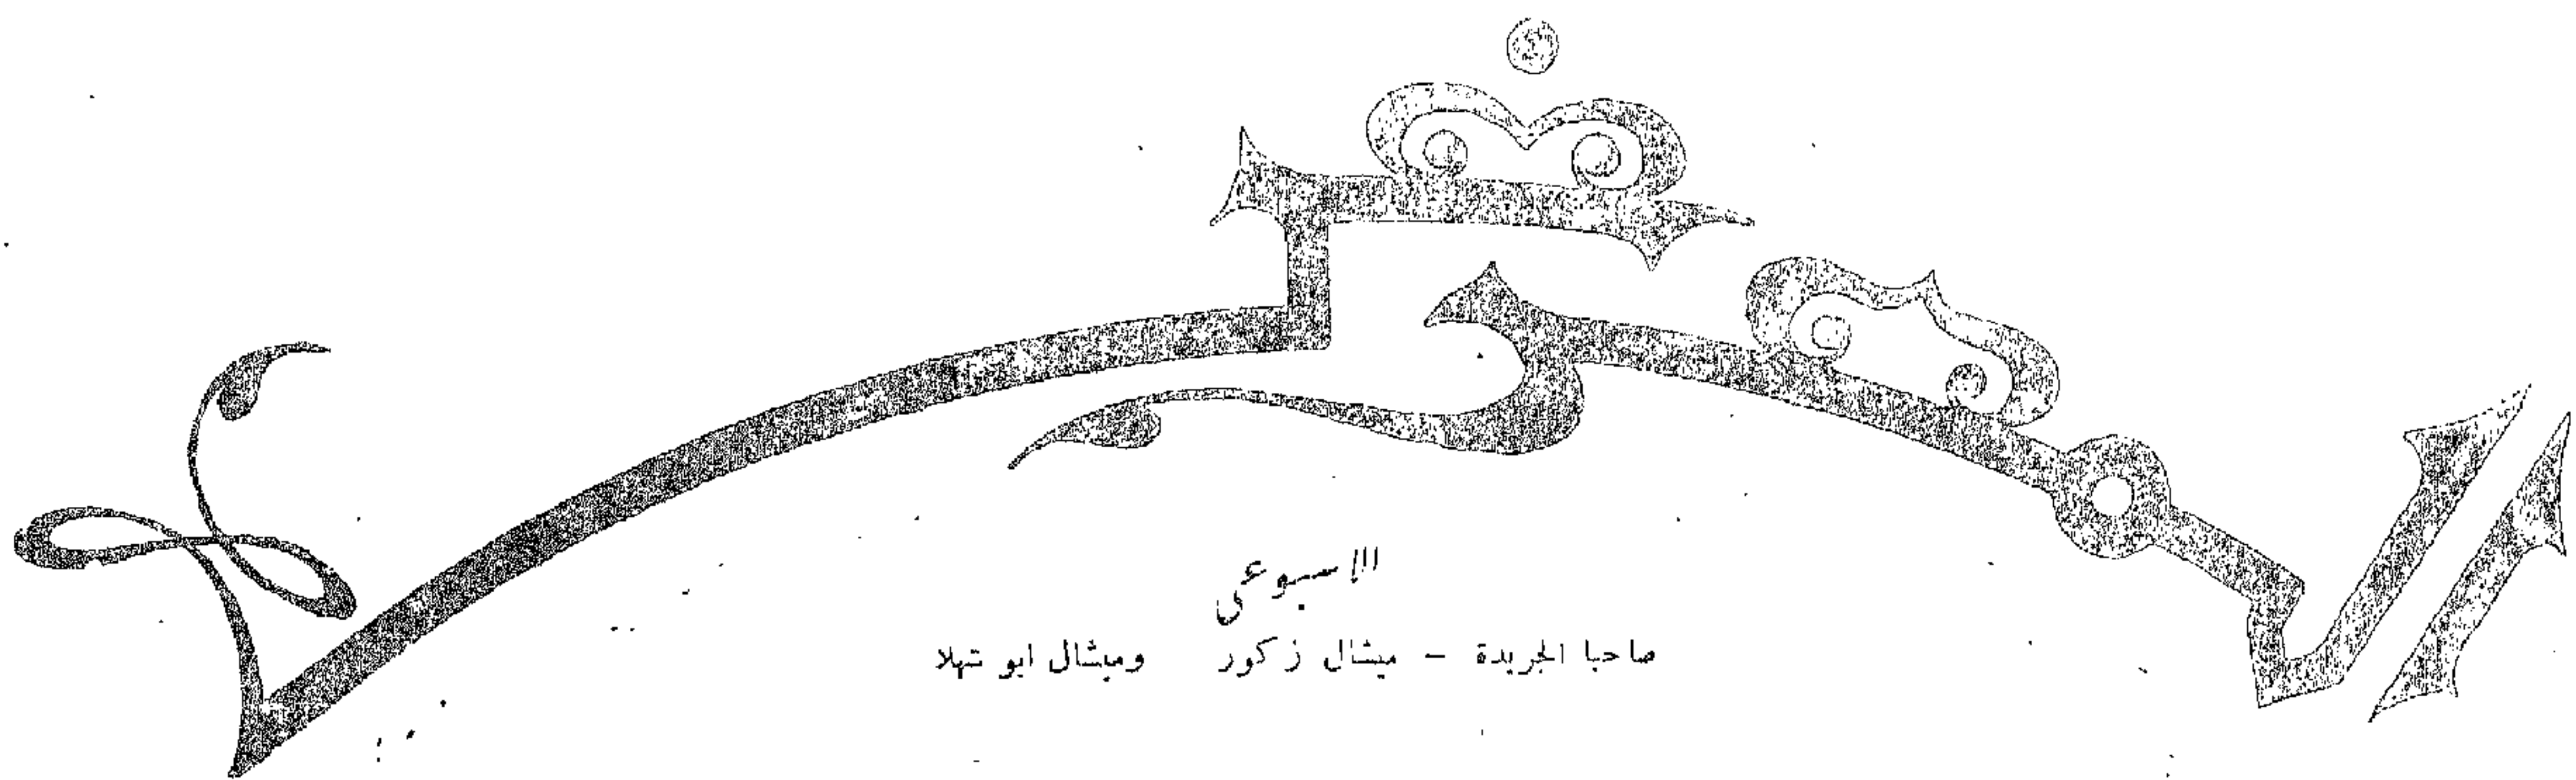 المعرض
الاسبوعي
صاحبا الجريدة - ميشال زكور وميشال ابو شهلا